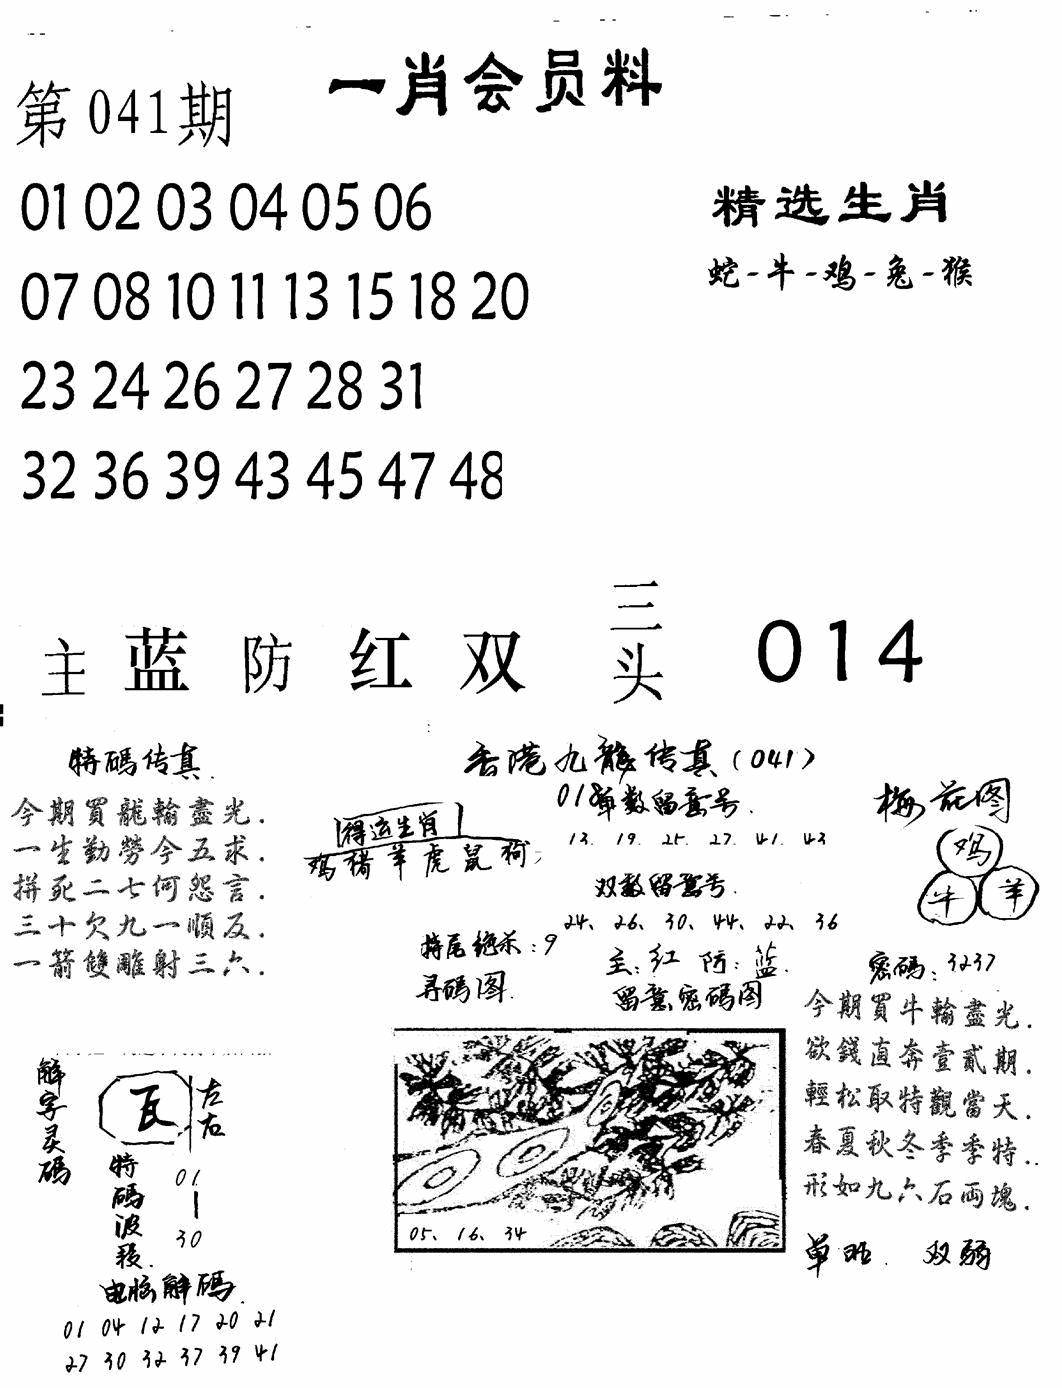 第041期
一肖会员料
01 02 03 04 05 06
07 08 10 11 13 15 18 20
23 24 26 27 28 31
32 36 39 43 45 47 48
精选生肖
蛇-牛-鸡-兔-猴
主 蓝 防 红 双 三头 014
特碼传真.
今期買龍輸盡光.
一生勤勞今五求.
拼死二七何怨言.
三十欠九一順反.
一箭雙雕射三六.
香港九龍传真(041)
得运生肖
鸡 猪 羊 虎 鼠 狗;
018单数留意号.
13. 19. 25. 27. 41. 43
双数留意号.
24、26、30、44、22、36
特尾绝杀:9
主:红 防:蓝.
寻码图.
留意密码图
05、16、34
梅花图
鸡
牛 羊
密碼:3237
今期買牛輸盡光.
欲錢直奔壹貳期.
輕松取特觀當天.
春夏秋冬季季特..
形如九六石両塊.
单旺. 双弱
解字灵碼
瓦
左右
特碼波段.
01
30
电脑解碼.
01 04 12 17 20 21
27 30 32 37 39 41